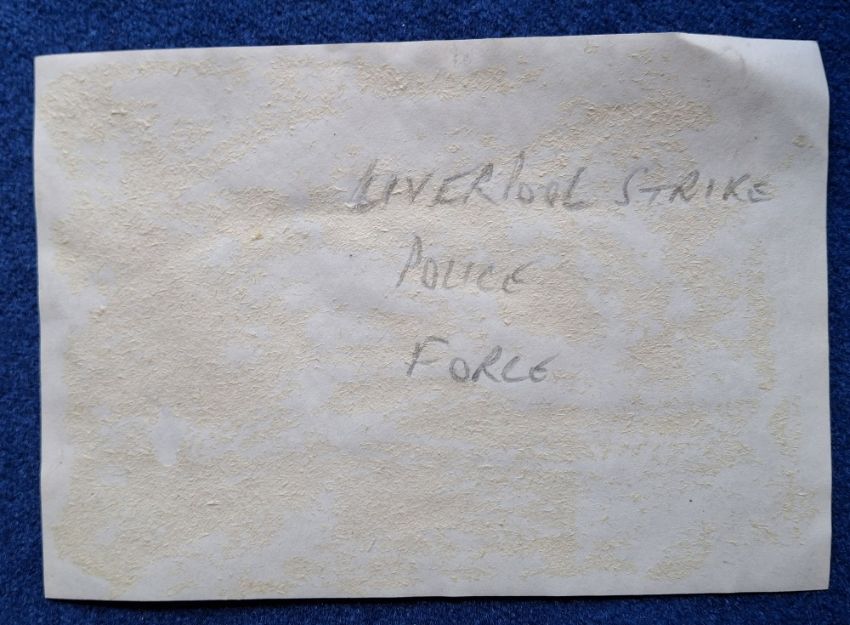 LIVERPOOL STRIKE
POLICE
FORCE